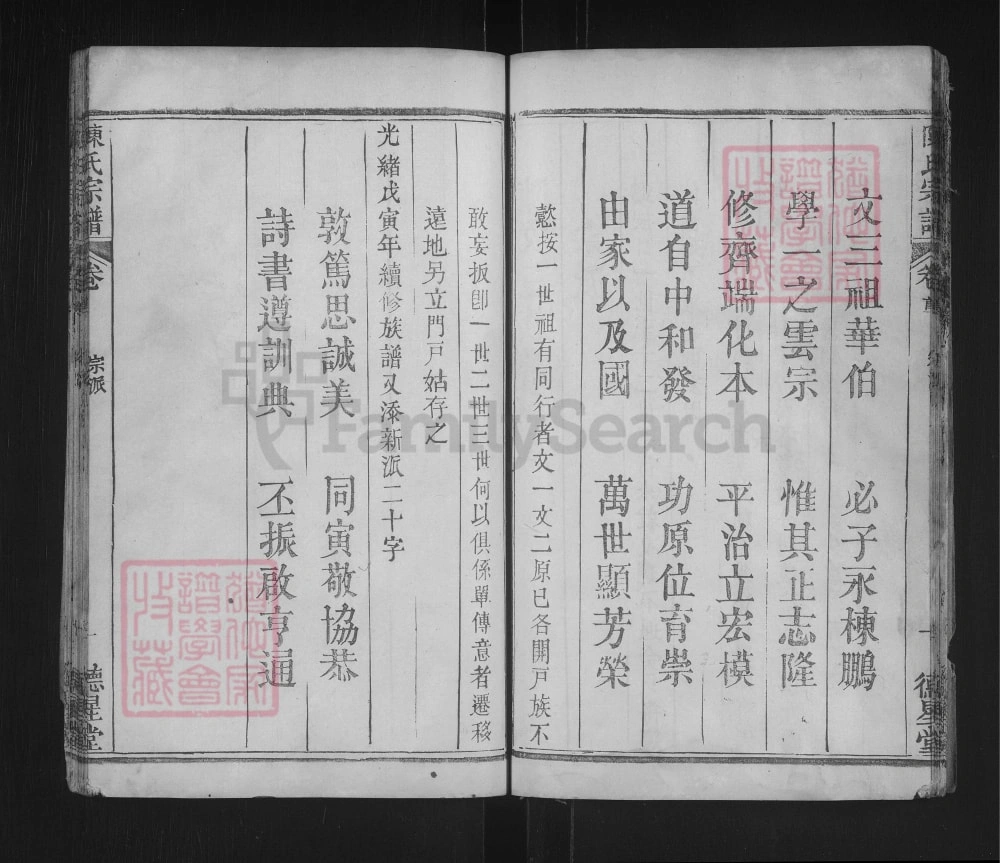 文三祖華伯　必子永棟鵬
學一之雲宗　惟其正志隆
修齊端化本　平治立宏模
道自中和發　功原位育崇
由家以及國　萬世顯芳榮
懿按一世祖有同行者文一文二原已各開戸族不
敢妄扳卽一世二世三世何以俱係單傳意者遷移
遠地另立門戸姑存之
光緒戊寅年續修族譜又添新派二十字
敦篤思誠美　同寅敬協恭
詩書遵訓典　丕振啟亨通
陳氏宗譜
卷首
宗派
一
德星堂
陳氏宗譜
卷首
一
德星堂
譜學會
收藏
譜學會
收藏
FamilySearch